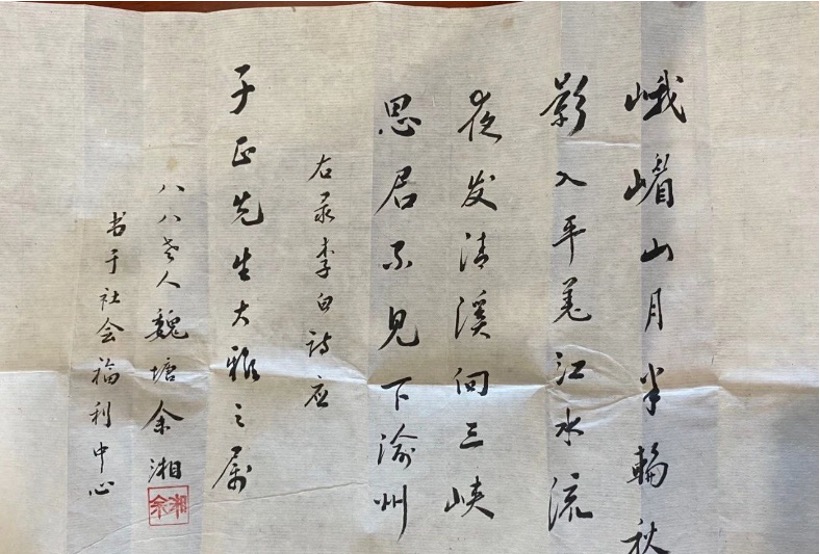 峨嵋山月半轮秋
影入平羌江水流
夜发清溪向三峡
思君不见下渝州
右录李白诗应
子正先生大雅之属
八八老人魏塘余湘
书于社会福利中心
余湘